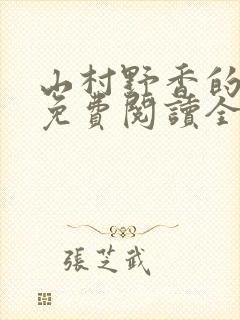 山村野香的
免費閱讀全
張芝武